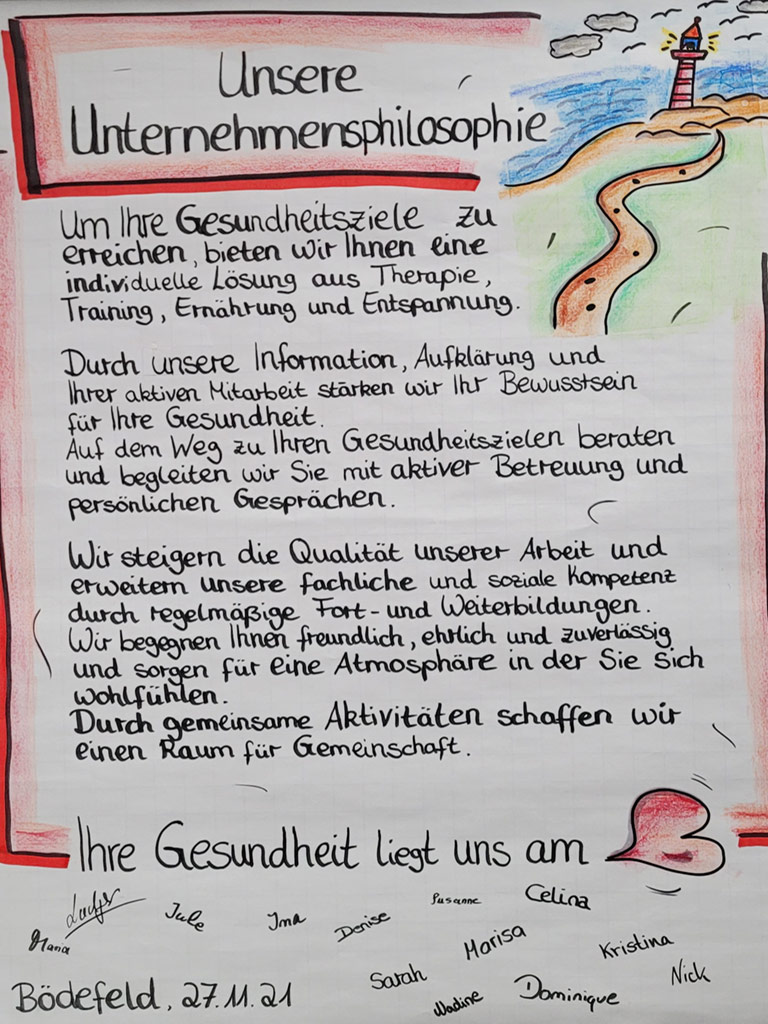 Unsere
Unternehmensphilosophie
Um Ihre Gesundheitsziele zu
erreichen, bieten wir Ihnen eine
individuelle Lösung aus Therapie,
Training, Ernährung und Entspannung.
Durch unsere Information, Aufklärung und
Ihrer aktiven Mitarbeit stärken wir Ihr Bewusstsein
für Ihre Gesundheit.
Auf dem Weg zu Ihren Gesundheitszielen beraten
und begleiten wir Sie mit aktiver Betreuung und
persönlichen Gesprächen.
Wir steigern die Qualität unserer Arbeit und
erweitern unsere fachliche und soziale Kompetenz
durch regelmäßige Fort- und Weiterbildungen.
Wir begegnen Ihnen freundlich, ehrlich und zuverlässig
und sorgen für eine Atmosphäre in der Sie sich
wohlfühlen.
Durch gemeinsame Aktivitäten schaffen wir
einen Raum für Gemeinschaft.
Ihre Gesundheit liegt uns am
Jule Ima Denise Susanne Celina
Marisa Kristina
Sarah Nadine Dominique Nick
Bödefeld, 27.11.21